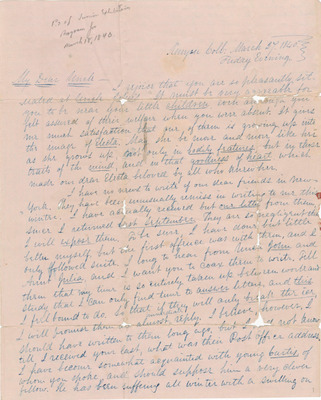 March 18, 1840
Friday Evening.
My Dear Uncle
I notice that you are so pleasantly sit-
uated at Uncle It must be very agreeable for
you to be near your little children with although you
felt assured of their welfare when you were absent. It gives
me much satisfaction that one of them is growing up into
the image of Electa. May she be more and more like her
as she grows up, not only in bodily features, but in those
traits of the mind and in that goodness of heart which
made our dear Electa beloved by all who knew her.
I have no news to write of our dear friends in New
York. They have been unusually remiss in writing to me this
winter. I have actually received but one letter from them
since I returned last September. They are so negligent that
I will expose them. To be sure, I have done but little
better myself, but the first offence was with them, and I
only followed suit. I long to hear from Uncle John and
Aunt Julia and I want you to coax them to write. Tell
them that my time is so entirely taken up between work and
study that I can only find time to answer letters, and this
I feel bound to do. So that if they will only break the ice,
I will promise them an almost reply. I believe, however, I
should have written to them long ago, but I did not know
till I received your last, what was their Post office address.
I have become somewhat acquainted with young
whom you spoke, and should suppose him a very clever
fellow. He has been suffering all winter with a swelling on